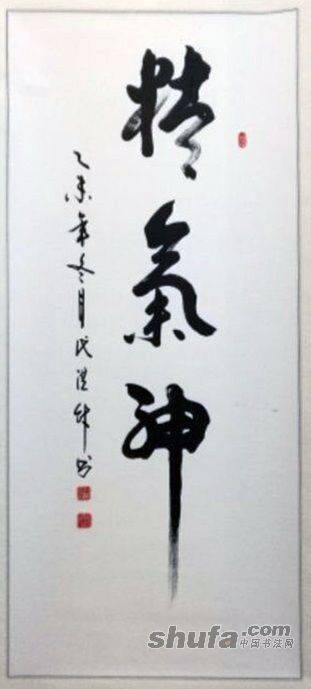 精氣神
乙未年冬月
書
shufa.com
中国书法网